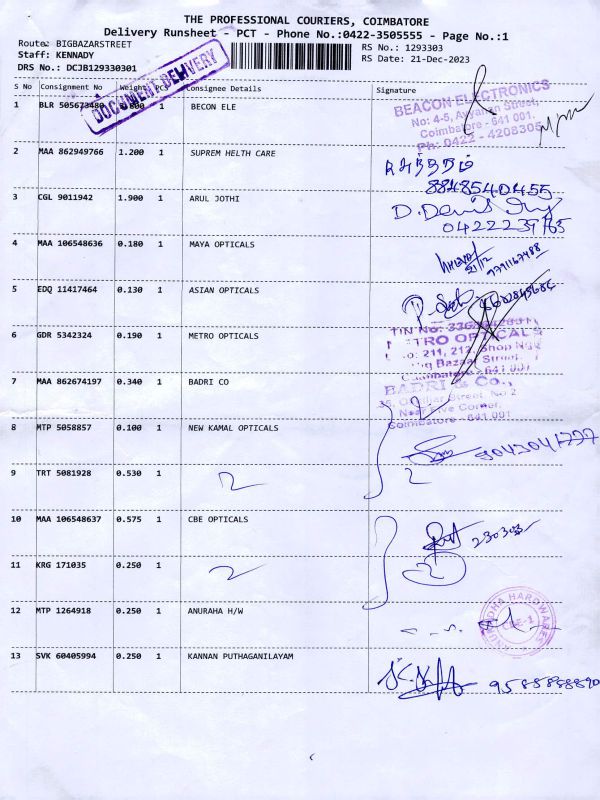 THE PROFESSIONAL COURIERS, COIMBATORE
Delivery Runsheet - PCT - Phone No.:0422-3505555 - Page No.:1
Route: BIGBAZARSTREET
RS No.: 1293303
Staff: KENNADY
RS Date: 21-Dec-2023
DRS No.: DCJB129330301
DOCUMENT DELIVERY
S No Consignment No Weight PCS Consignee Details Signature
1 BLR 505673480 1 BECON ELE
BEACON ELECTRONICS
No: 4-5, Ayyanan Street,
Coimbatore - 641 001.
Ph: 0422 - 4208305
2 MAA 862949766 1.200 1 SUPREM HELTH CARE
8848540455
3 CGL 9011942 1.900 1 ARUL JOTHI
D.
4 MAA 106548636 0.180 1 MAYA OPTICALS
21/12
5 EDQ 11417464 0.130 1 ASIAN OPTICALS
6 GDR 5342324 0.190 1 METRO OPTICALS
TIN No:
211, 212, Shop No
Coimbatore - 641 001
7 MAA 862674197 0.340 1 BADRI CO
BADRI & Co.,
Street, No 2
Near Five Corner,
Coimbatore - 641 001
8 MTP 5058857 0.100 1 NEW KAMAL OPTICALS
9043041777
9 TRT 5081928 0.530 1
10 MAA 106548637 0.575 1 CBE OPTICALS
230303
11 KRG 171035 0.250 1
12 MTP 1264918 0.250 1 ANURAHA H/W
HARDWARES
CBE-1
13 SVK 60405994 0.250 1 KANNAN PUTHAGANILAYAM